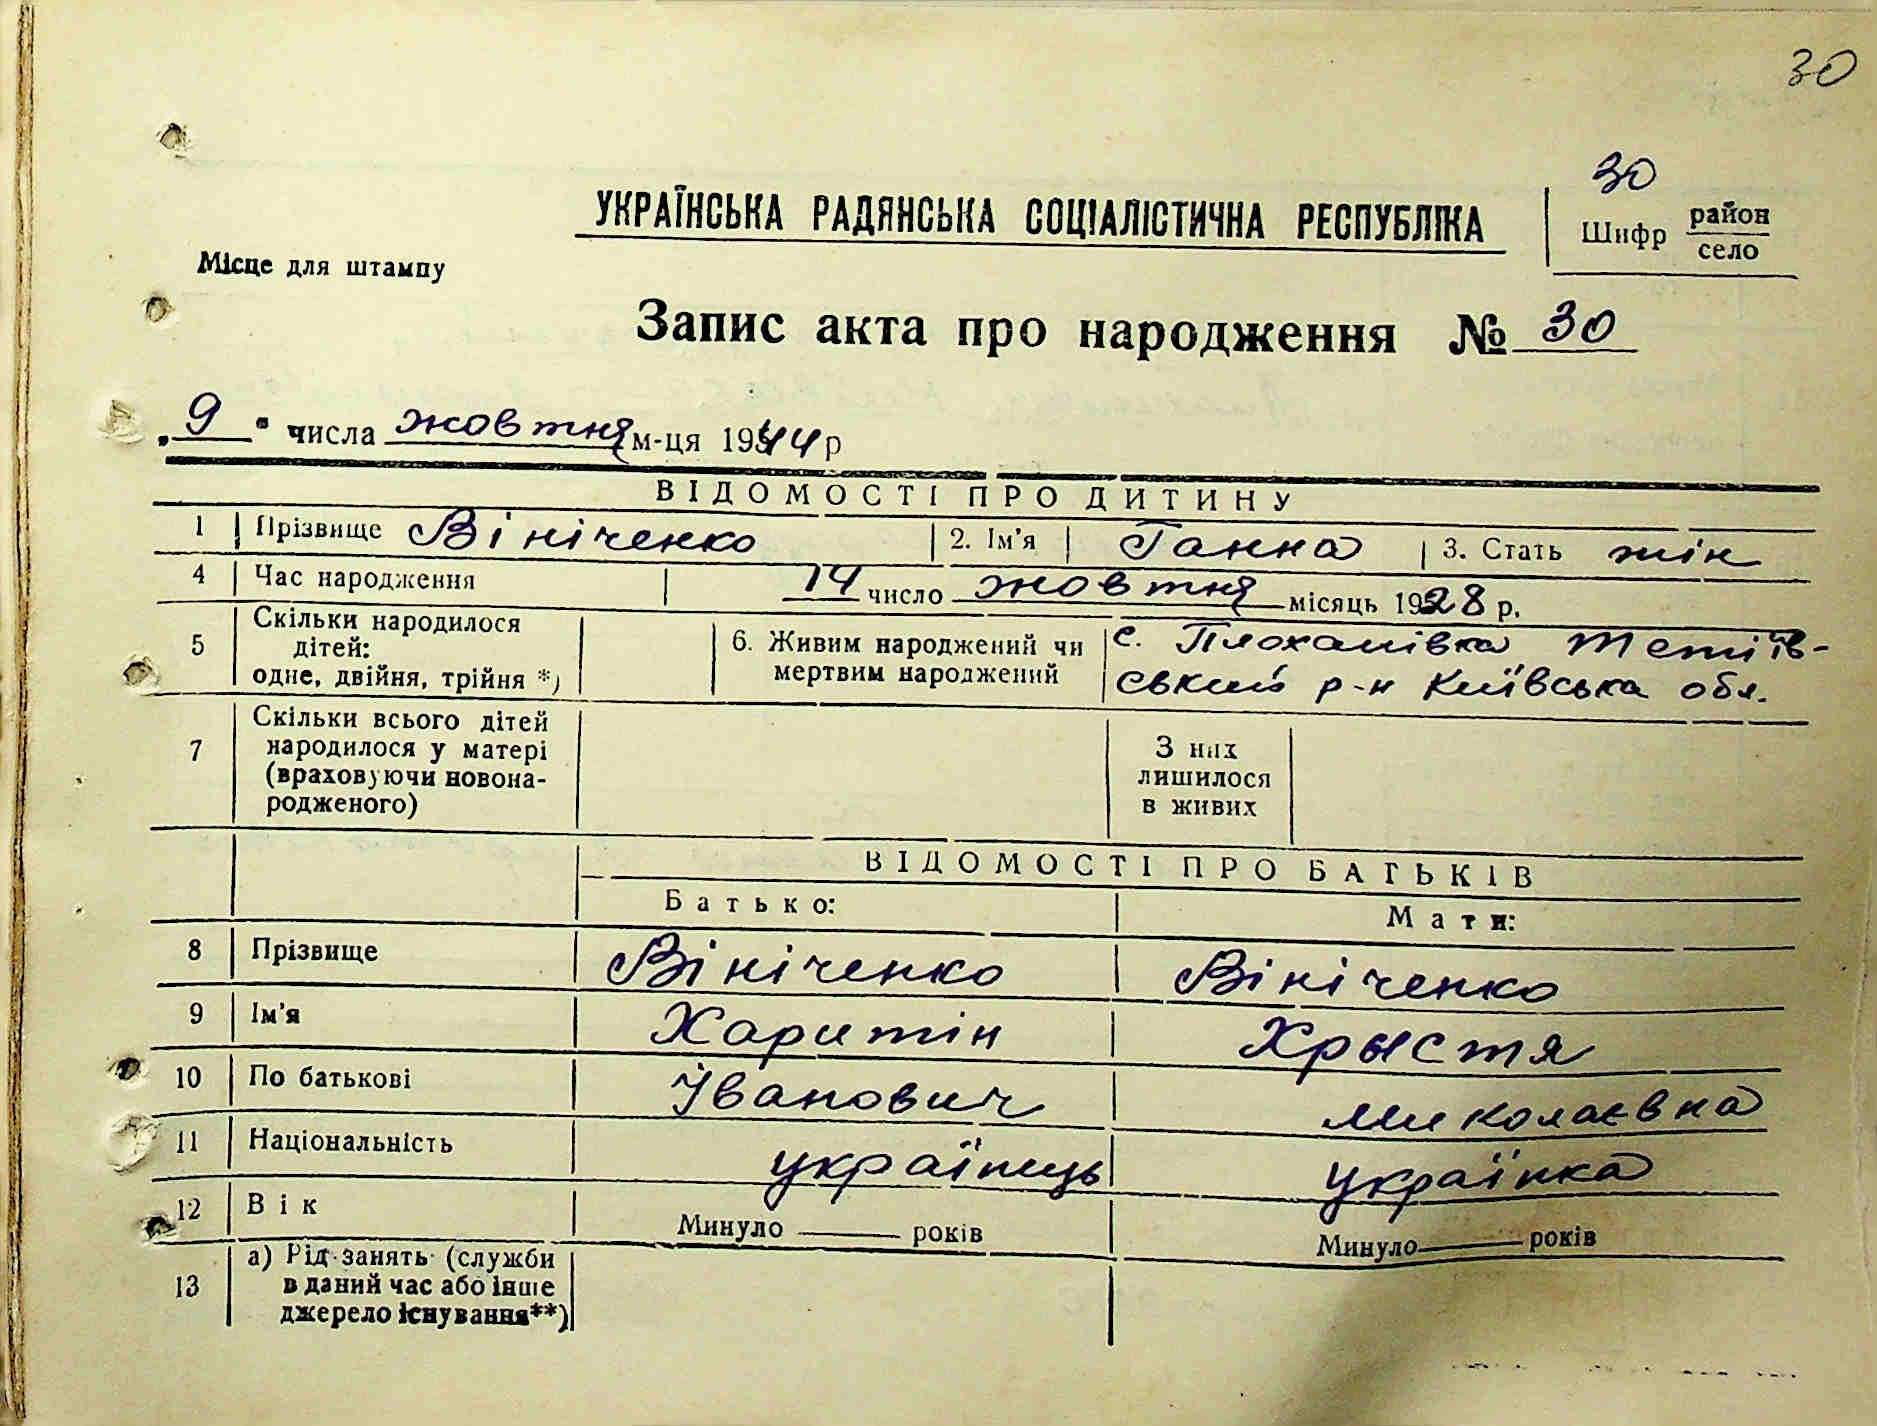 30
30
УКРАЇНСЬКА РАДЯНСЬКА СОЦІАЛІСТИЧНА РЕСПУБЛІКА
Шифр район
село
Місце для штампу
Запис акта про народження № 30
„9" числа жовтня м-ця 1944 р
ВІДОМОСТІ ПРО ДИТИНУ
1 Прізвище Вініченко 2. Ім'я Ганна 3. Стать жін
4 Час народження 14 число жовтня місяць 1928 р.
5 Скільки народилося дітей: одне, двійня, трійня *) 6. Живим народжений чи мертвим народжений с. Плоханівка Тетіїв-
ський р-н Київська обл.
7 Скільки всього дітей народилося у матері (враховуючи новона-родженого) З них лишилося в живих
ВІДОМОСТІ ПРО БАТЬКІВ
Батько: Мати:
8 Прізвище Вініченко Вініченко
9 Ім'я Харитін Хрыстя
10 По батькові Іванович Миколаєвна
11 Національність українець українка
12 Вік Минуло років Минуло років
13 а) Рід занять (служби
в даний час або інше
джерело існування**)